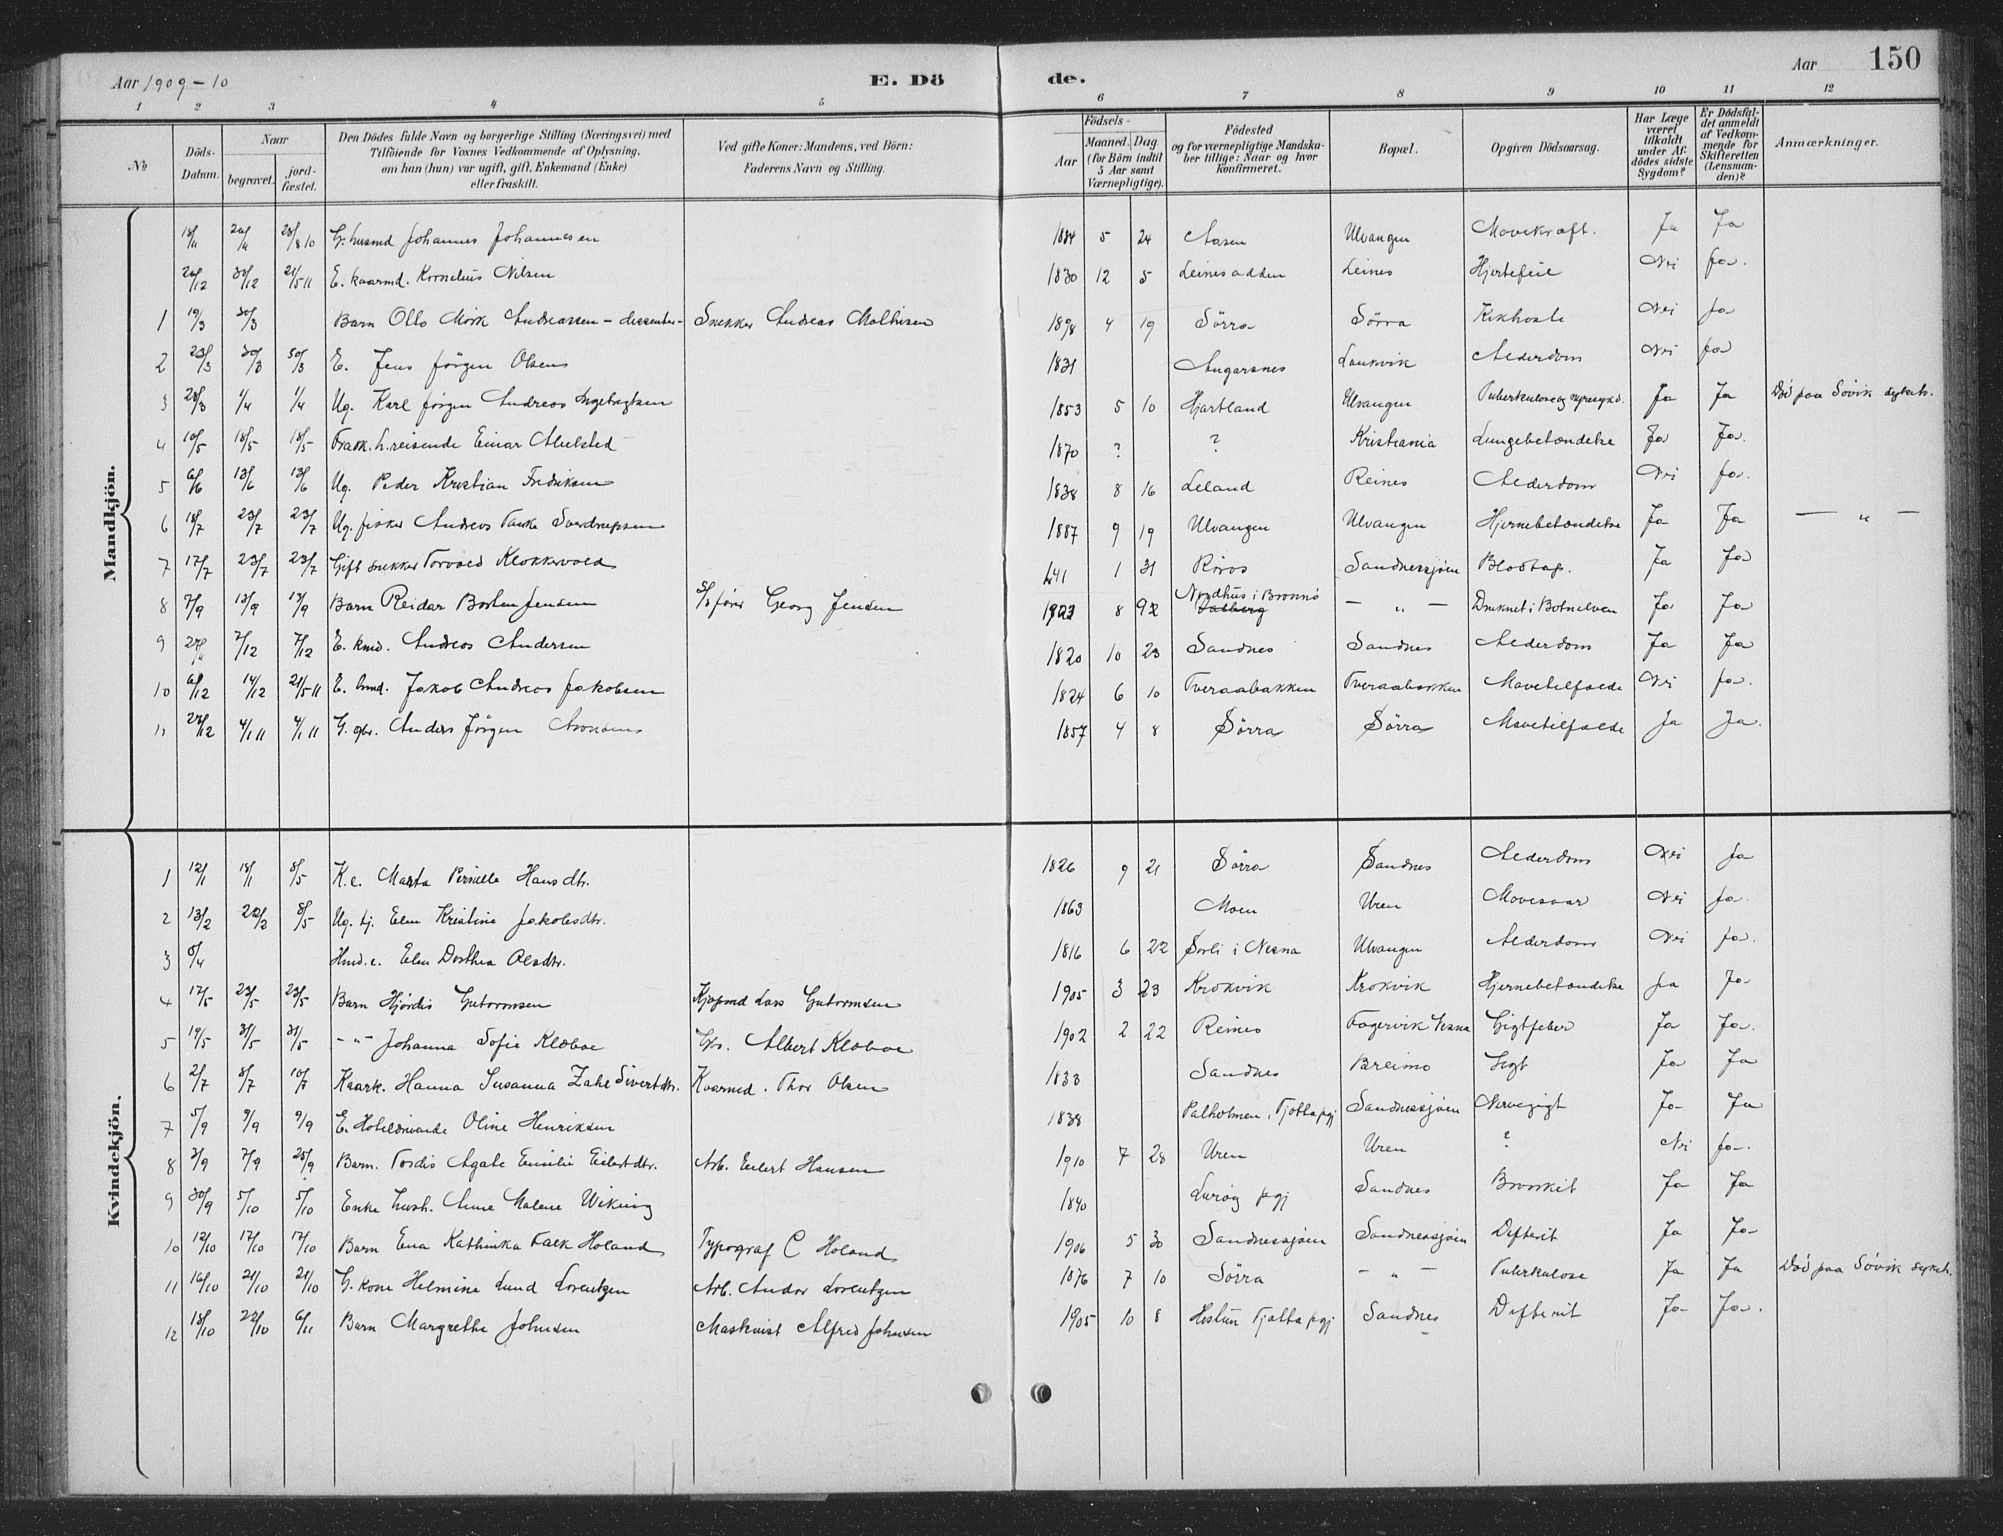 Aar 1909-10 E. Dö de. Aar 150
1 2 3 4 5 6 7 8 9 10 11 12
No. Döds-Datum. Naar begravet. jordfæstet. Den Dödes fulde Navn og borgerlige Stilling (Næringsvei) med Tilföiende for Voxnes Vedkommende af Oplysning, om han (hun) var ugift, gift, Enkemand (Enke) eller fraskilt. Ved gifte Koner: Mandens, ved Börn: Faderens Navn og Stilling. Födsels- Aar Maaned. Dag. (for Börn indtil 5 Aar samt Værnepligtige). Födested og for værnepligtige Mandskaber tillige: Naar og hvor konfirmeret. Bopæl. Opgiven Dödsaarsag. Har Læge været tilkaldt under Afdödes sidste Sygdom? Er Dödsfaldet anmeldt af Vedkommende for Skifteretten (Lensmanden)? Anmærkninger.
Mandkjön.
18/11 20/11 28/8 10 G. husmd Johannes Johannesen 1884 5 24 Aasen Ulvangen Mavekræft. Ja Ja
20/12 30/12 21/5 11 E. kaarmd. Kornelius Nilsen 1830 12 5 Leinesodden Leines Hjertefeil Nei Ja.
1 19/3 30/3 Barn Otto Mörk Andreassen - dissenter - Snekker Andreas Mathisen 1898 4 19 Sörra Sörra Kikhoste Nei Ja
2 23/3 30/3 30/3 E. Jens Jörgen Olsen 1831 Angersnes Leinesvik Alderdom Nei Ja
3 28/3 1/4 1/4 Ug. Karl Jörgen Andreas Ingebrigtsen 1853 5 10 Hjartland Ulvangen Tuberkulose og nyresykd. Ja Ja Död paa Sövik sykeh.
4 10/5 18/5 18/5 Frask. h.reisende Einar Abelsted 1870 ? ? Kristiania Lungebetændelse Ja Ja.
5 6/6 13/6 13/6 Ug. Peder Kristian Fredriksen 1838 8 16 Leland Reines Alderdom Nei Ja.
6 18/7 23/7 23/7 Ug. fisker Andreas Tanke Sverdrupsen 1887 9 19 Ulvangen Ulvangen Hjernebetændelse Ja Ja — " —
7 17/7 23/7 23/7 Gift snekker Torvald Klokkervold 1841 1 31 Röros Sandnessjöen Blodtap. Ja Ja
8 7/9 13/9 13/9 Barn Reidar Borten Jensen S/s förer Georg Jensen 8 Nordhus i Brönnö — " — Druknet i Botnelven Ja Ja
9 7/12 7/12 E. kmd. Andreas Andersen 1820 10 23 Sandnes Sandnes Alderdom Ja Ja
10 6/12 14/12 21/5 11 E. hmd. Jakob Andreas Jakobsen 1824 6 10 Tveraabakken Tveraabakken Mavetilfælde Nei Ja.
11 27/12 4/1 11 4/1 11 G. gbr. Anders Jörgen Aronsen 1857 4 8 Sörra Sörra Mavetilfælde Ja Ja.
Kvindekjön.
1 12/1 18/1 8/5 K.e. Marta Pernille Hansdtr. 1826 9 21 Sörra Sandnes Alderdom Nei Ja
2 13/2 22/2 8/5 Ug. tj. Elen Kristine Jakobsdtr. 1863 Moen Uren Mavesaar Nei Ja.
3 5/4 Hmd.e. Elen Dorthea Olsdtr. 1816 6 22 Sörli i Nesna Ulvangen Alderdom Nei Ja.
4 17/5 23/5 23/5 Barn Hjördis Gutormsen Kjöpmd Lars Gutormsen 1905 3 23 Krokvik Krokvik Hjernebetændelse Ja Ja
5 19/5 31/5 31/5 — " — Johanna Sofie Klæboe Gbr. Albert Klæboe 1902 2 22 Reines Fagervik Nesna Gigtfeber Ja Ja.
6 2/7 8/7 10/7 Kaark. Hanna Susanna Zahl Sivertdtr. Kaarmd. Thor Olsen 1833 Sandnes Breimo Gigt Ja Ja
7 5/9 9/9 9/9 E. Hoteldrivende Oline Henriksen 1838 Palholmen, Tjötta pgj Sandnessjöen Nervegigt Ja Ja
8 2/9 7/9 25/9 Barn. Tordis Agate Emilie Eilertdtr. Arb. Eilert Hansen 1910 7 28 Uren Uren ? Nei Ja.
9 30/9 5/10 5/10 Enke hush. Anne Malene Wiking 1840 Luröy pgj Sandnes Bronkit Ja Ja
10 12/10 17/10 17/10 Barn Ena Kathinka Falk Holand Typograf C Holand 1906 5 30 Sandnessjöen Sandnessjöen Difterit Ja Ja
11 16/10 21/10 21/10 G. kone Helmine Lund Lorentzen Arb. Andor Lorentzen 1876 7 10 Sörra — " — Tuberkulose Ja Ja Död paa Sövik sykeh.
12 18/10 22/10 6/11 Barn Margrethe Johnsen Maskinist Alfred Johnsen 1905 10 8 Hestun Tjötta pgj Sandnes Difterit Ja Ja.